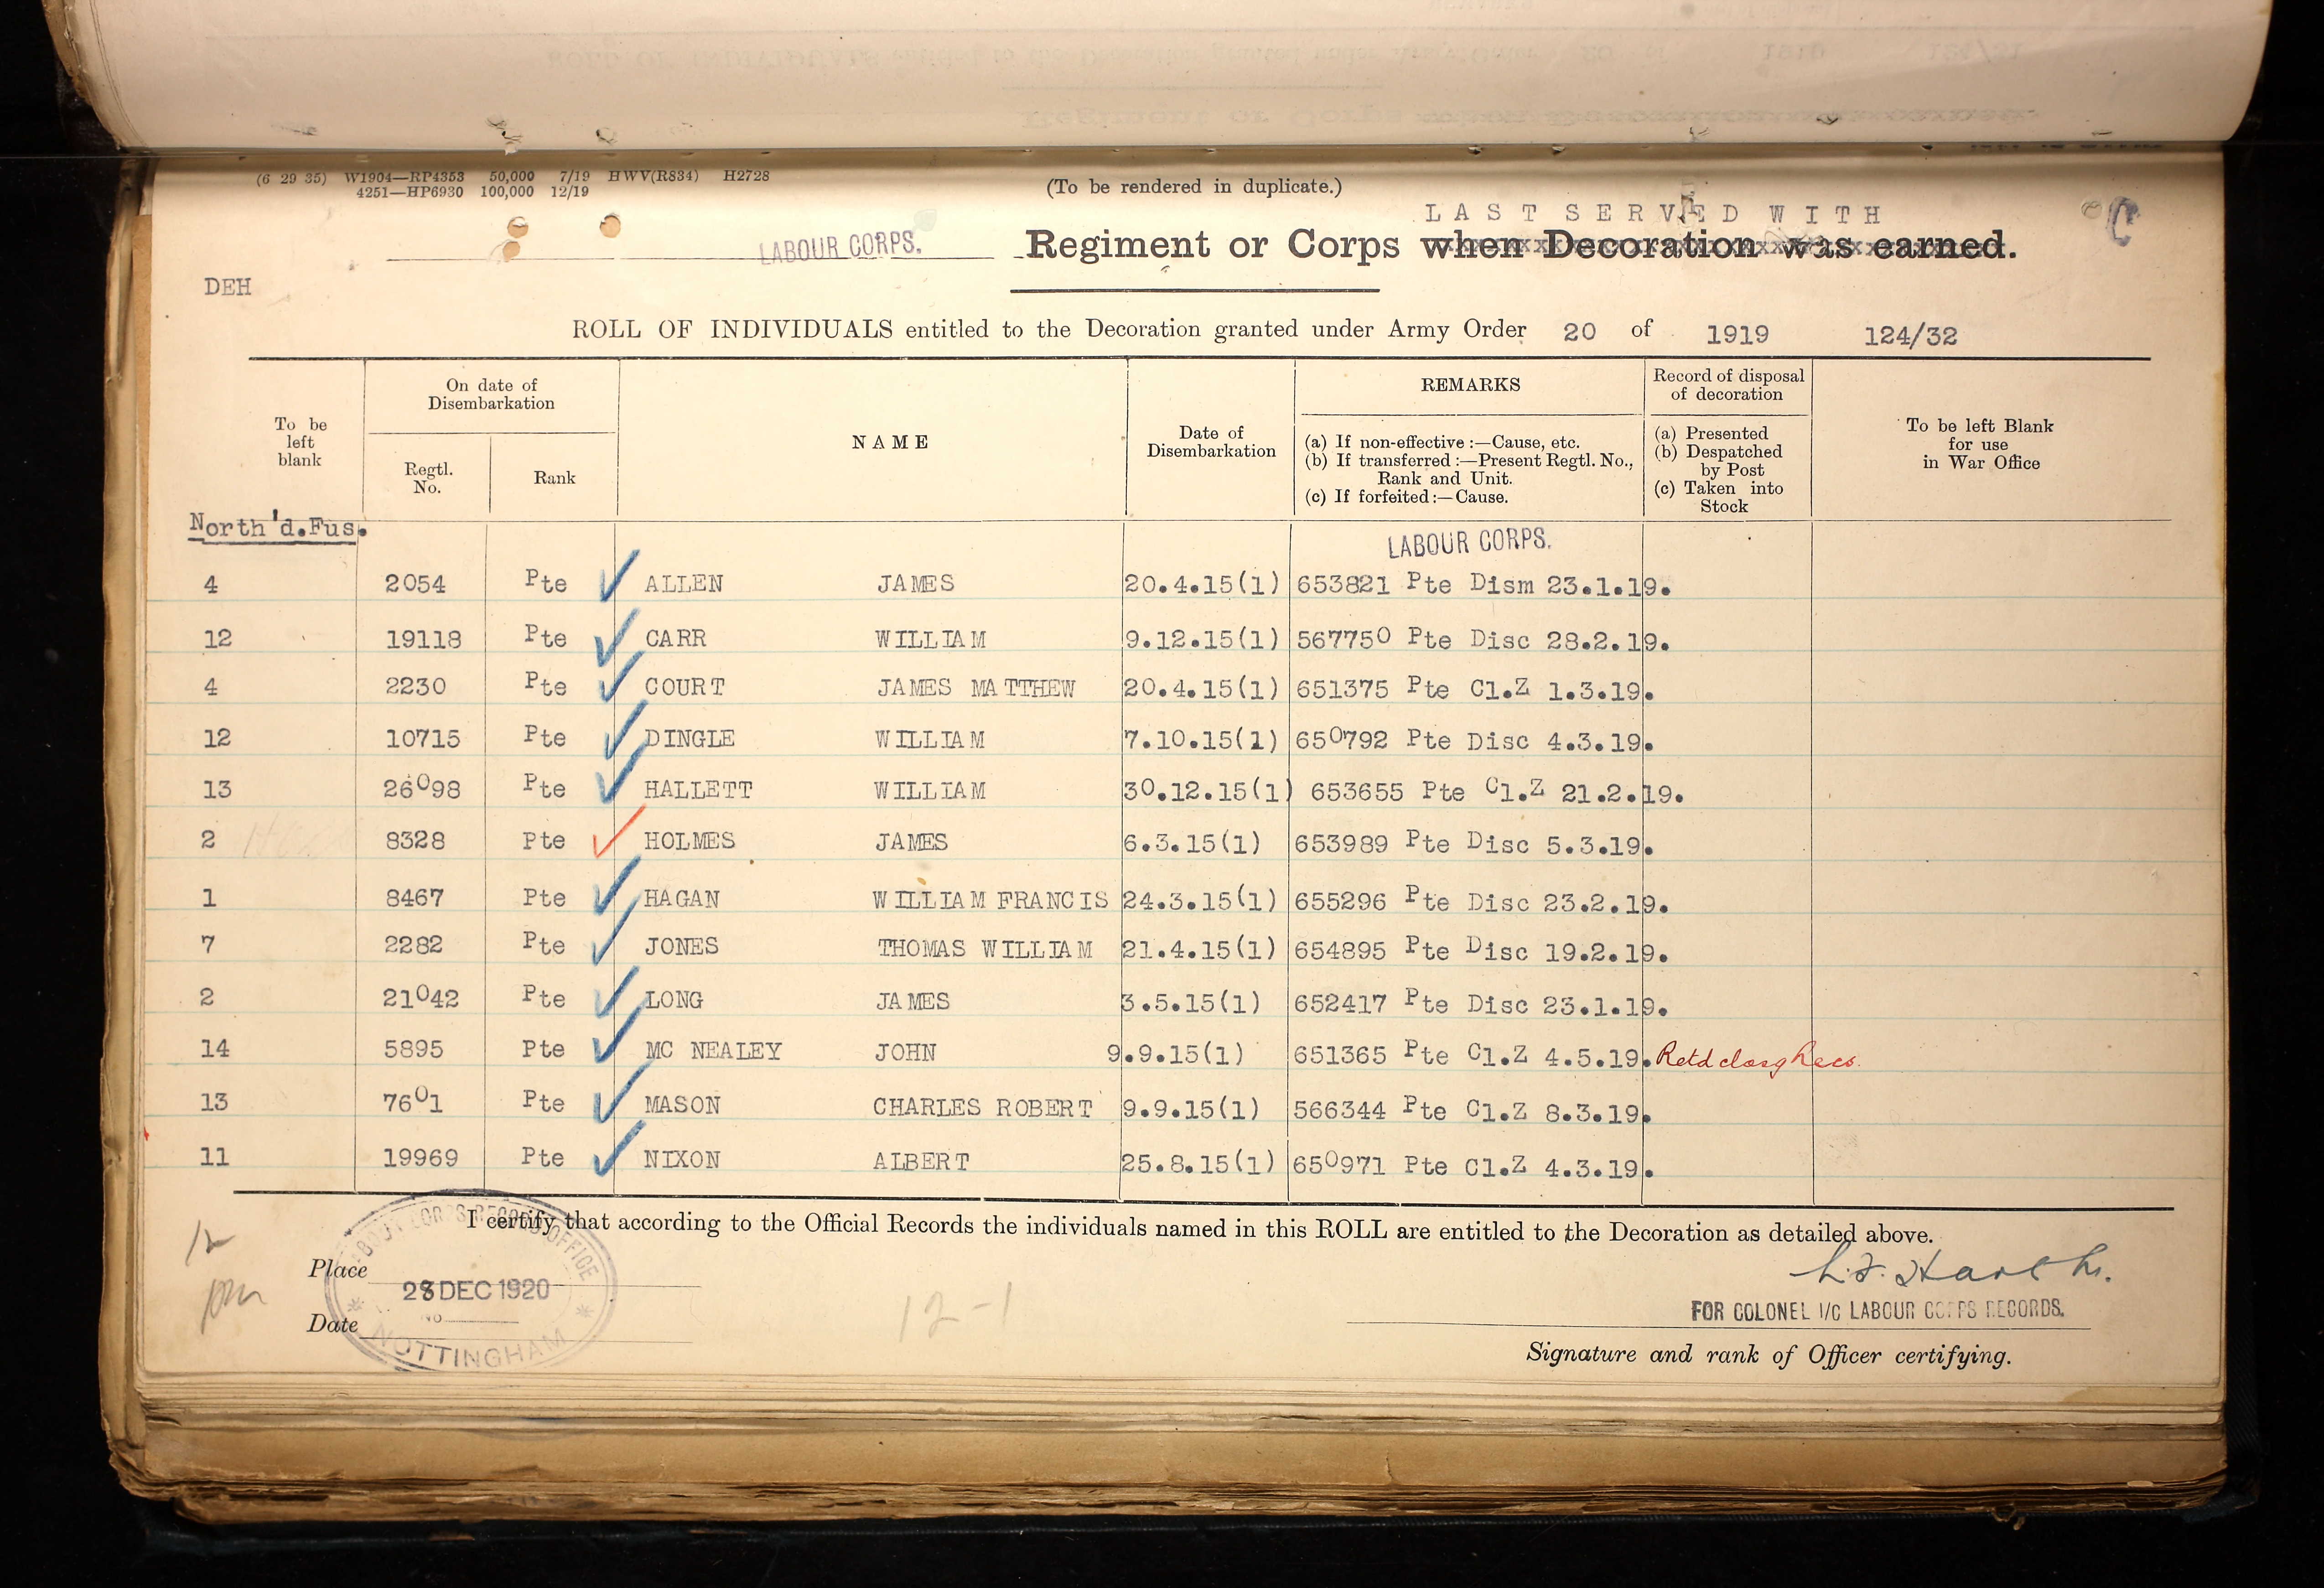 (6 29 35) W1904—RP4353 50,000 7/19 HWV(R834) H2728
4251—HP6930 100,000 12/19
(To be rendered in duplicate.)
LAST SERVED WITH
LABOUR CORPS. Regiment or Corps when Decoration was earned.
C
DEH
ROLL OF INDIVIDUALS entitled to the Decoration granted under Army Order 20 of 1919 124/32
To be left blank
On date of Disembarkation
Regtl. No.
Rank
NAME
Date of Disembarkation
REMARKS
(a) If non-effective :—Cause, etc.
(b) If transferred :—Present Regtl. No., Rank and Unit.
(c) If forfeited :—Cause.
Record of disposal of decoration
(a) Presented
(b) Despatched by Post
(c) Taken into Stock
To be left Blank for use in War Office
North'd.Fus.
LABOUR CORPS.
4 2054 Pte ALLEN JAMES 20.4.15(1) 653821 Pte Dism 23.1.19.
12 19118 Pte CARR WILLIAM 9.12.15(1) 567750 Pte Disc 28.2.19.
4 2230 Pte COURT JAMES MATTHEW 20.4.15(1) 651375 Pte Cl.Z 1.3.19.
12 10715 Pte DINGLE WILLIAM 7.10.15(1) 650792 Pte Disc 4.3.19.
13 26098 Pte HALLETT WILLIAM 30.12.15(1) 653655 Pte Cl.Z 21.2.19.
2 8328 Pte HOLMES JAMES 6.3.15(1) 653989 Pte Disc 5.3.19.
1 8467 Pte HAGAN WILLIAM FRANCIS 24.3.15(1) 655296 Pte Disc 23.2.19.
7 2282 Pte JONES THOMAS WILLIAM 21.4.15(1) 654895 Pte Disc 19.2.19.
2 21042 Pte LONG JAMES 3.5.15(1) 652417 Pte Disc 23.1.19.
14 5895 Pte MC NEALEY JOHN 9.9.15(1) 651365 Pte Cl.Z 4.5.19. Retd
13 7601 Pte MASON CHARLES ROBERT 9.9.15(1) 566344 Pte Cl.Z 8.3.19.
11 19969 Pte NIXON ALBERT 25.8.15(1) 650971 Pte Cl.Z 4.3.19.
I certify that according to the Official Records the individuals named in this ROLL are entitled to the Decoration as detailed above.
12
LABOUR CORPS RECORD OFFICE
Place
28 DEC 1920
No
Date
NOTTINGHAM
12-1
FOR COLONEL I/C LABOUR CORPS RECORDS.
Signature and rank of Officer certifying.